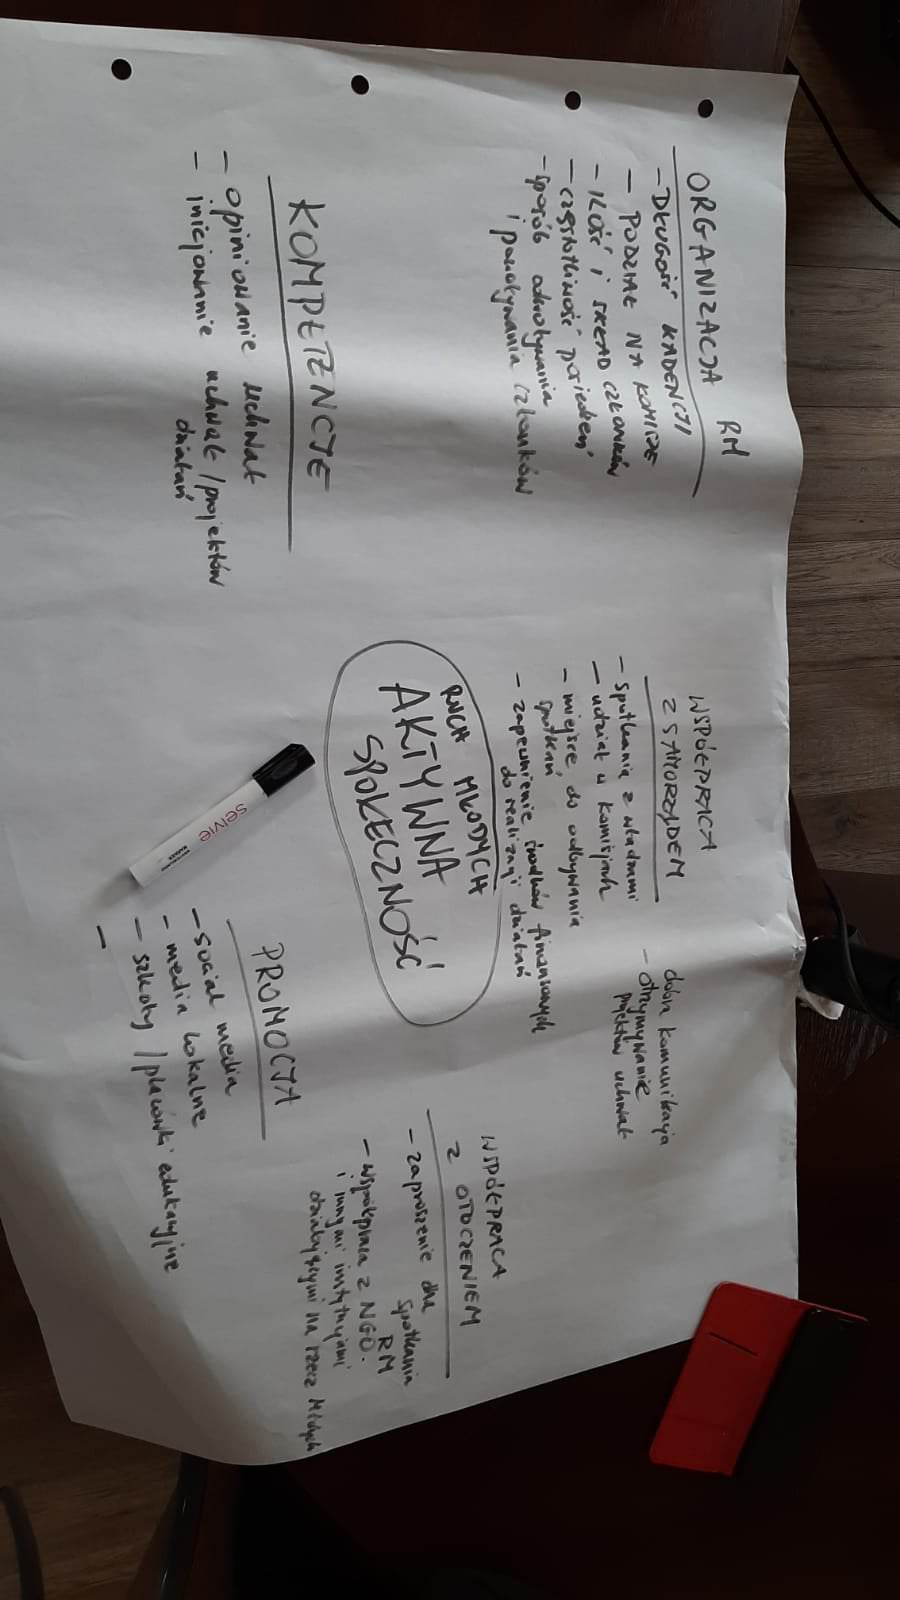 ORGANIZACJA RM
- DŁUGOŚĆ KADENCJI
- PODZIAŁ NA KOMISJE
- ILOŚĆ I SKŁAD CZŁONKÓW
- CZĘSTOTLIWOŚĆ POSIEDZEŃ
- sposób odwoływania
i powoływania członków
KOMPETENCJE
- opiniowanie uchwał
- inicjowanie uchwał / projektów
działań
WSPÓŁPRACA
Z SAMORZĄDEM
- spotkania z władzami
- udział w komisjach
- miejsce do odbywania
spotkań
- zapewnienie środków finansowych
do realizacji działań
dobra komunikacja
- otrzymywanie
projektów uchwał
RUCH MŁODYCH
AKTYWNA
SPOŁECZNOŚĆ
selvie
PROMOCJA
- social media
- media lokalne
- szkoły / placówki edukacyjne
-
WSPÓŁPRACA
Z OTOCZENIEM
- zaproszenie dla
spotkania
RM
- współpraca z NGO.
i innymi instytucjami
działającymi na rzecz Młodych